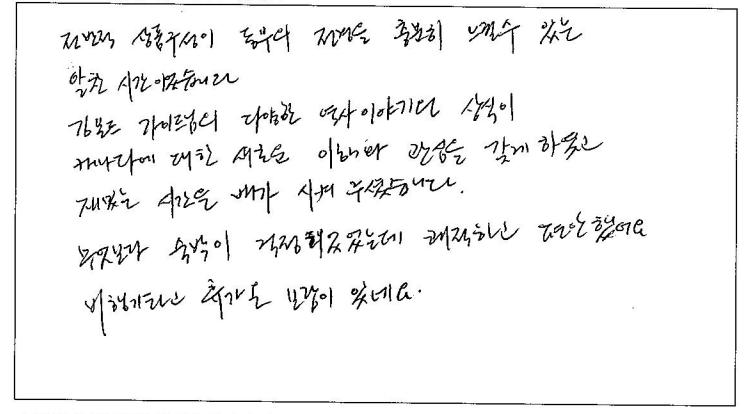 전반적 상품구성이 동부의 전경을 충분히 느낄수 있는
알찬 시간이었습니다
가이드님의 다양한 역사이야기와 상식이
캐나다에 대한 새로운 이해와 관심을 갖게 하였고
재밌는 시간을 배가 시켜 주셨습니다.
무엇보다 숙박이 걱정되었었는데 쾌적하고 편안했어요
비행기타고 휴가온 보람이 있네요.